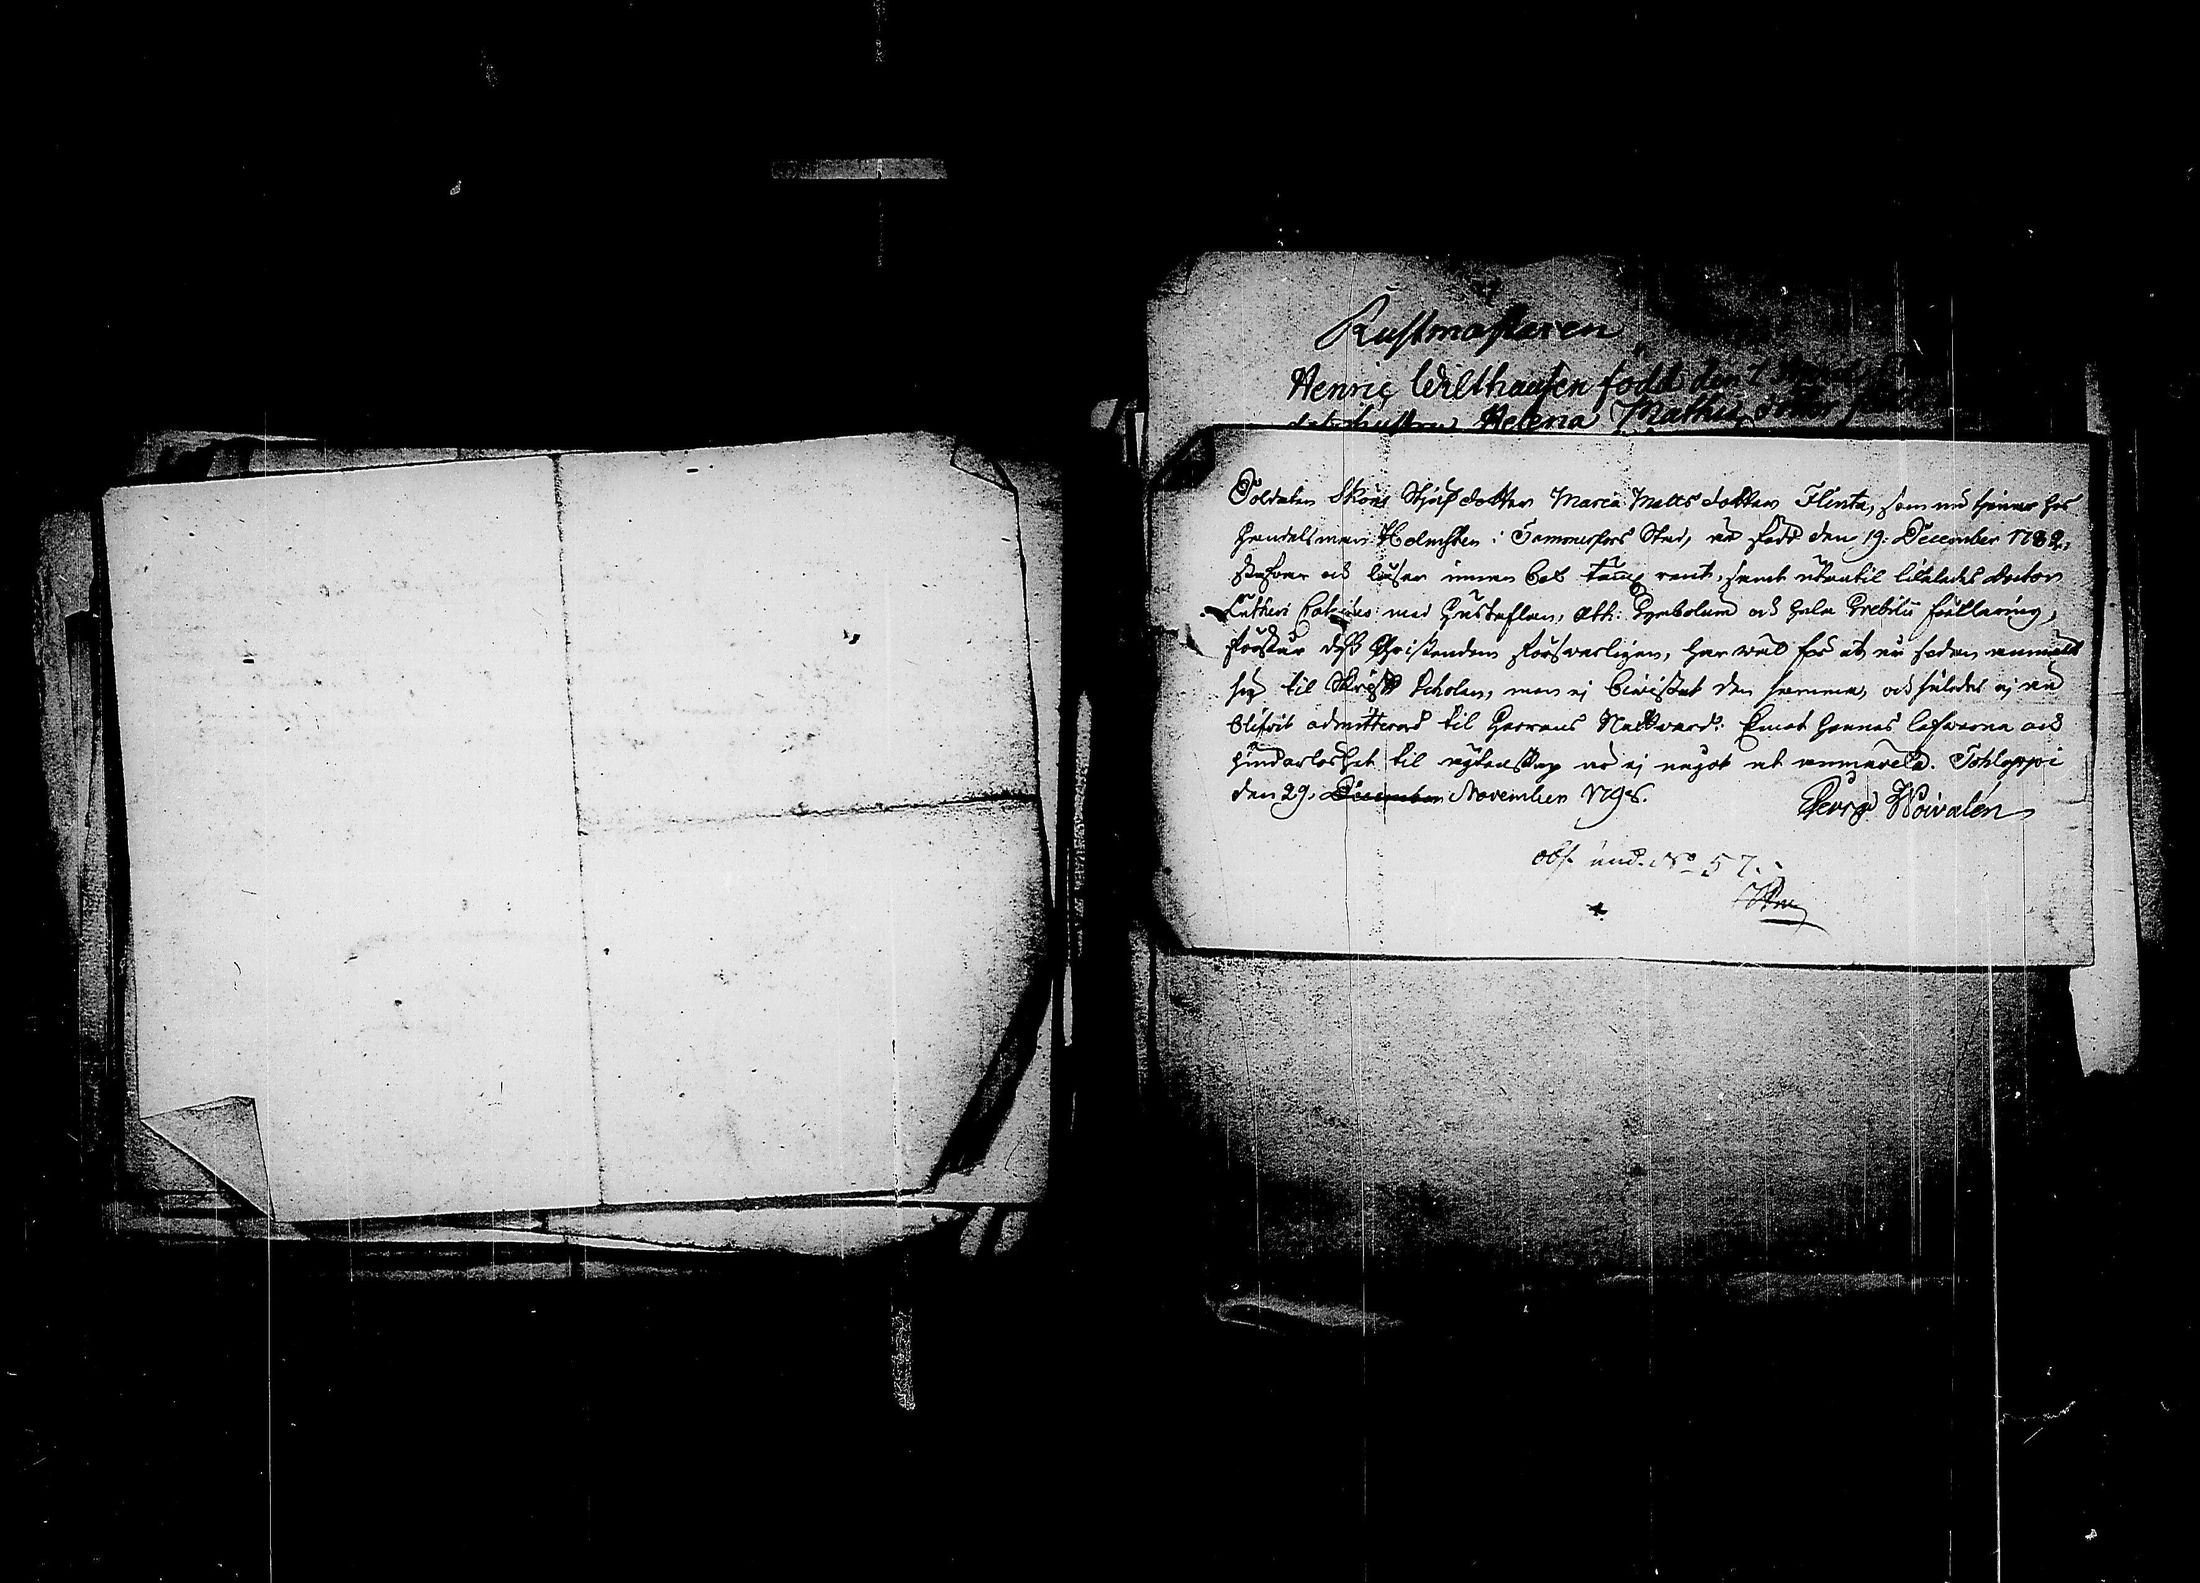 Rustmästaren
Henric Wilthausen född den 7
Helena Mathis dotter
Soldaten Sköns Stjufdotter Maria Matts dotter Flinta, som nu tjenar hos
Handelsman Holmsten i Tammerfors Stad, är född den 19. December 1782,
stafvar och läser innan bok rent, samt utantil Doctor
Lutheri Cateches med Hustaflan, Ath: Symbolum och hela Svebilii förklaring,
förstår dess Christendom försvarligen, har väl för ett år sedan anmält
sig til Skrift Scholan, men ej bivistat den samma, och således ej än
blifvit admitterad til Herrans Nattvard: Emot hennes lefverne och
hinderlöshet til ägtenskap är ej något at anmärka. Tohloppi
den 29. December November 1798. Georg Woivalén
obs. und. No 57.